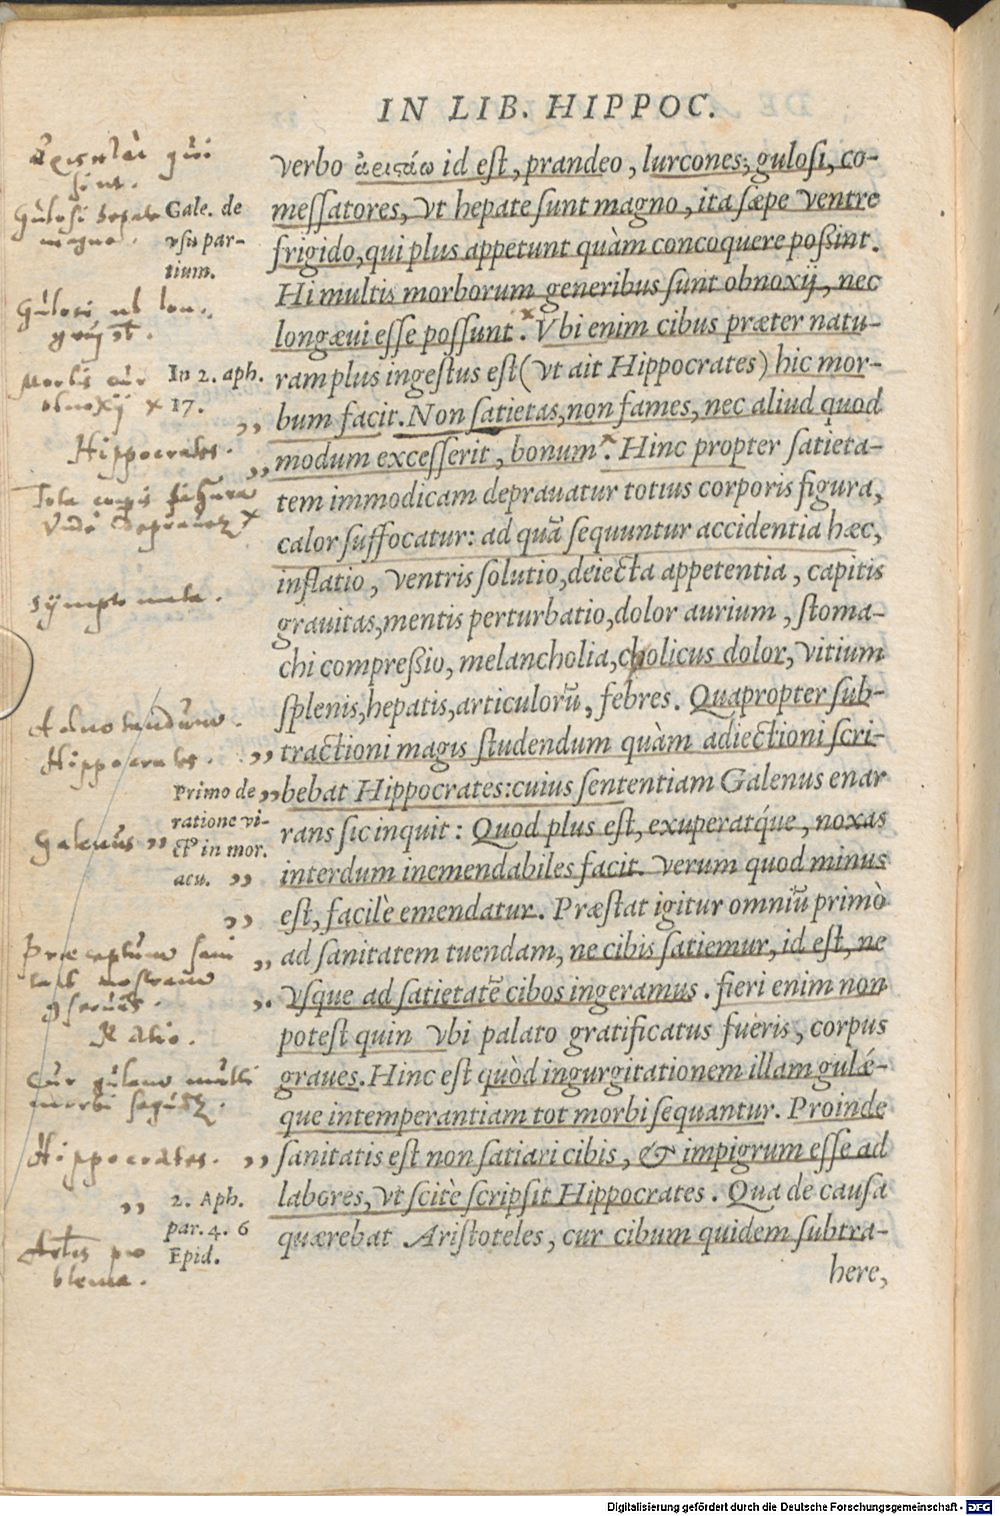 IN LIB. HIPPOC.
verbo ἀριστάω id est, prandeo, lurcones, gulosi, co-
messatores, vt hepate sunt magno, ita sæpe ventre
frigido, qui plus appetunt quàm concoquere poßint.
Hi multis morborum generibus sunt obnoxij, nec
longæui esse possunt. Vbi enim cibus præter natu-
ram plus ingestus est (vt ait Hippocrates) hic mor-
bum facit. Non satietas, non fames, nec aliud quod
modum excesserit, bonum. Hinc propter satieta-
tem immodicam deprauatur totius corporis figura,
calor suffocatur: ad quã sequuntur accidentia hæc,
inflatio, ventris solutio, deiecta appetentia, capitis
grauitas, mentis perturbatio, dolor aurium, stoma-
chi compreßio, melancholia, cholicus dolor, vitium
splenis, hepatis, articulorũ, febres. Quapropter sub-
tractioni magis studendum quàm adiectioni scri-
bebat Hippocrates: cuius sententiam Galenus enar
rans sic inquit: Quod plus est, exuperatque, noxas
interdum inemendabiles facit. Verum quod minus
est, facilè emendatur. Præstat igitur omniũ primò
ad sanitatem tuendam, ne cibis satiemur, id est, ne
vsque ad satietatẽ cibos ingeramus. fieri enim non
potest quin vbi palato gratificatus fueris, corpus
graues. Hinc est quòd ingurgitationem illam gulǽ-
que intemperantiam tot morbi sequantur. Proinde
sanitatis est non satiari cibis, & impigrum esse ad
labores, vt scitè scripsit Hippocrates. Qua de causa
quærebat Aristoteles, cur cibum quidem subtra-
here,
qui
sint.
Gulosi hepate
magno.
Gale. de
vsu par-
tium.
Gulosi
Morbis cur
obnoxij
In 2. aph.
17.
Hippocrates.
Tota figura
symptomata.
Adnotandum.
Hippocrates.
Galenus
Primo de
ratione vi-
ct' in mor.
acu.
Præceptum
Ratio.
Cur gulam multi
morbi
Hippocrates.
2. Aph.
par. 4. 6
Epid.
problema.
Digitalisierung gefördert durch die Deutsche Forschungsgemeinschaft - DFG